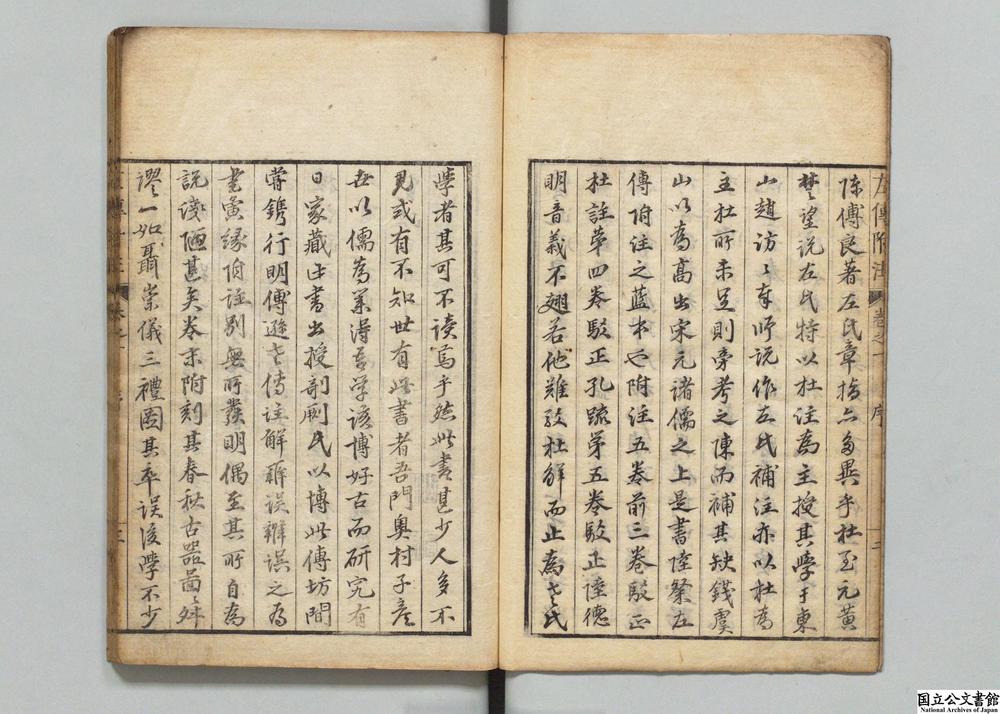 左傳附注 卷之一 序 二
陳傅良著左氏章指亦多異乎杜至元黃
楚望說左氏特以杜注為主授其學于東
山趙訪〻奉師說作左氏補注亦以杜為
主杜所未足則旁考之陳而補其缺錢虞
山以為高出宋元諸儒之上是書陸粲左
傳附注之藍本也附注五卷前三卷駁正
杜註第四卷駁正孔疏第五卷駁正陸德
明音義不翅若他難攷杜解而止為左氏
學者其可不讀焉乎然此書甚少人多不
見或有不知世有此書者吾門奧村子彥
世以儒為業溥學該博好古而研究有
日家藏此書出授剞劂氏以博此傳坊間
嘗鐫行明傅遜左傳注解辨誤辨誤之為
書寅緣附註別無所發明偶至其所自為
說淺陋甚矣卷末附刻其春秋古器圖舛
謬一如聶崇儀三禮圖其卒誤後學不少
三
国立公文書館
National Archives of Japan